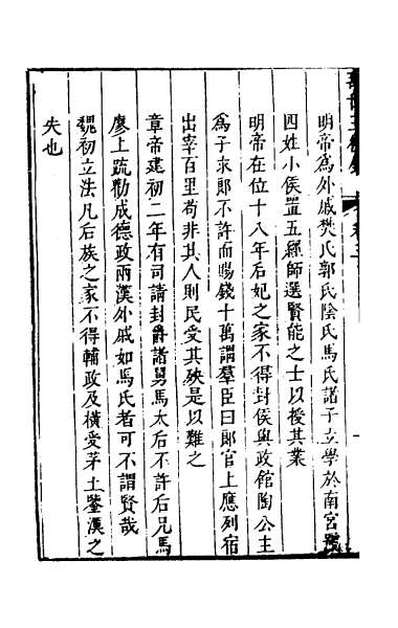 明帝為外戚樊氏郭氏陰氏馬氏諸子立學於南宮號
四姓小侯置五經師選賢能之士以授其業
明帝在位十八年后妃之家不得封侯與政館陶公主
為子求郎不許而賜錢十萬謂羣臣曰郎官上應列宿
出宰百里苟非其人則民受其殃是以難之
章帝建初二年有司請封爵諸舅馬太后不許后兄馬
廖上疏勸成德政兩漢外戚如馬氏者可不謂賢哉
魏初立法凡后族之家不得輔政及橫受茅土鑒漢之
失也